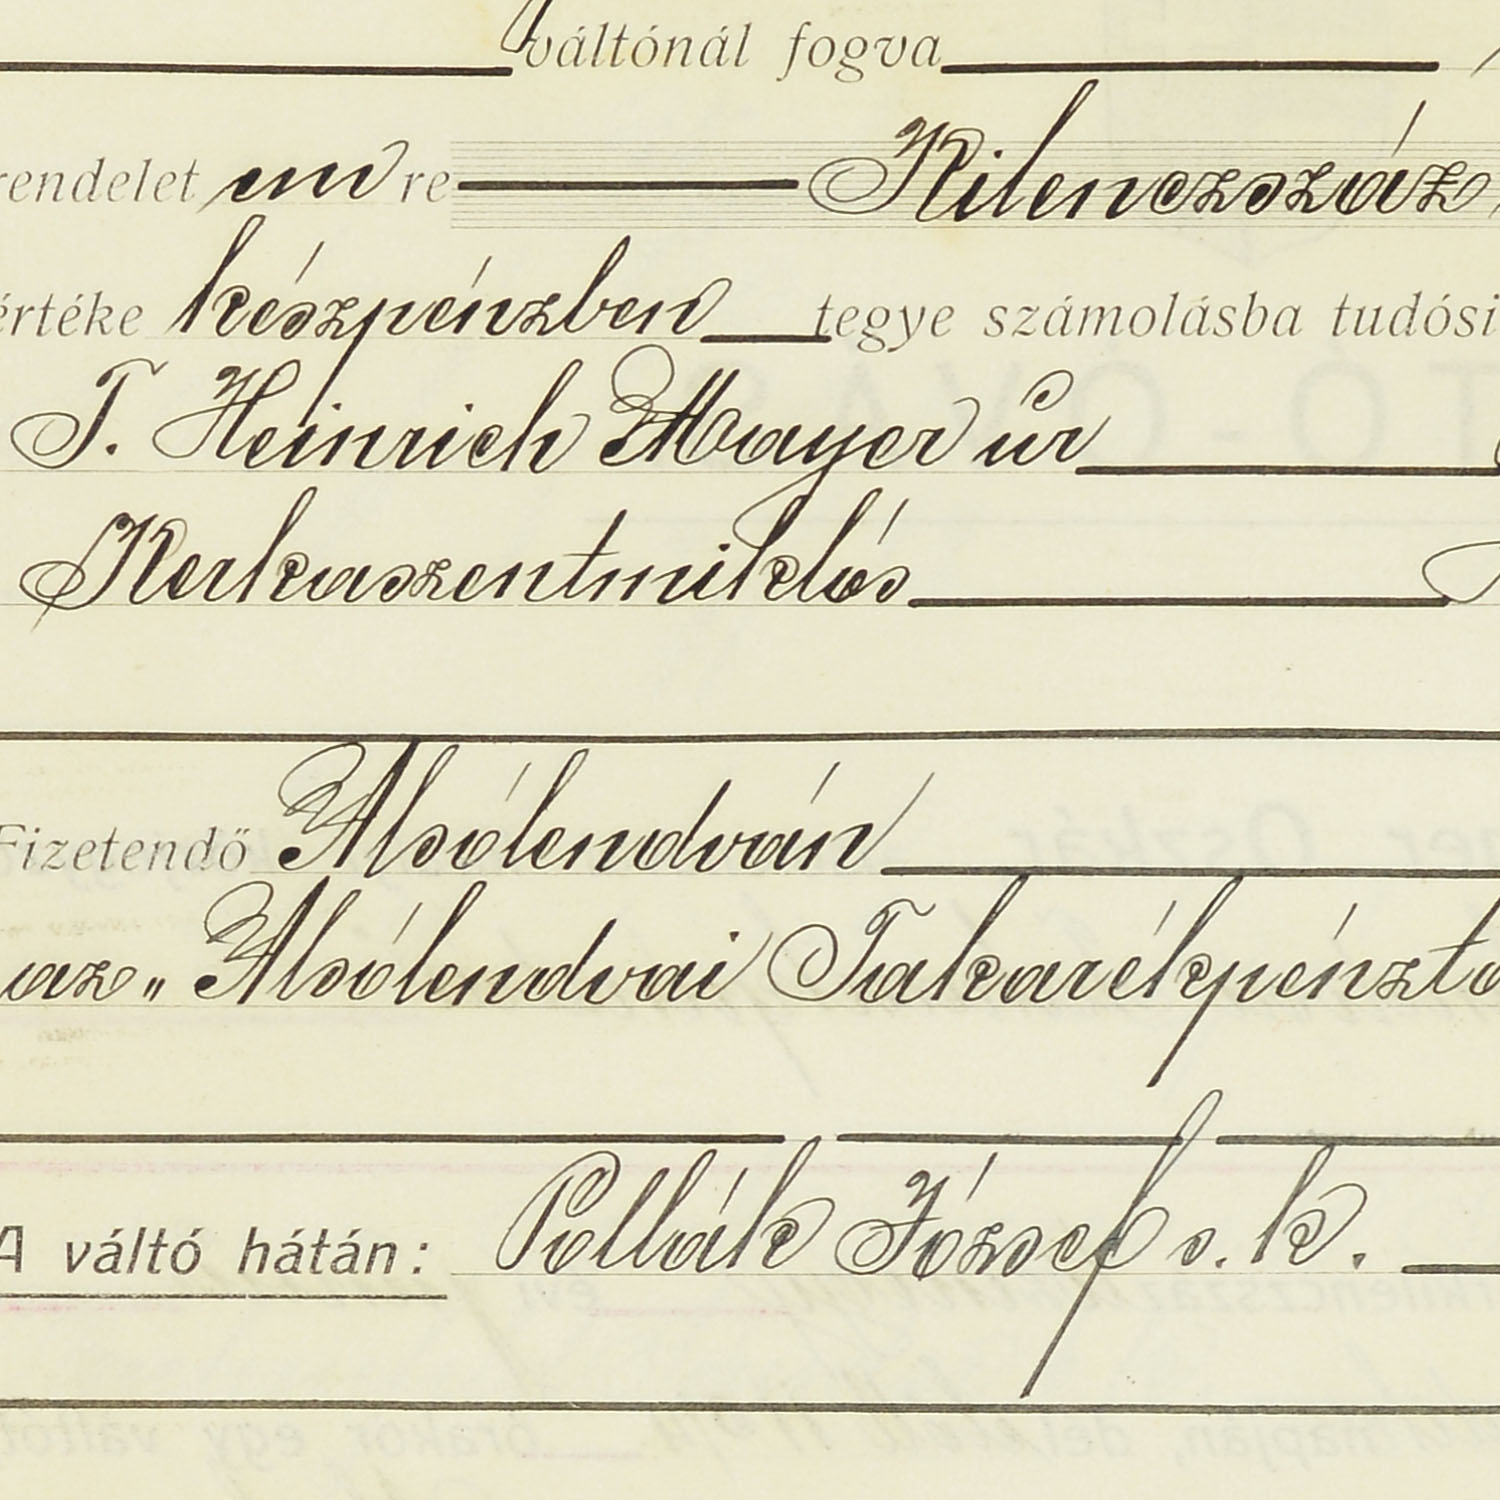 váltónál fogva
rendelet en re Kilenczszáz
értéke készpénzben tegye számolásba tudósi
T. Heinrich Mayer úr
Kerkaszentmiklós
Fizetendő Alsólendván
az „Alsólendvai Takarékpénztá
A váltó hátán: Pollák József s. k.